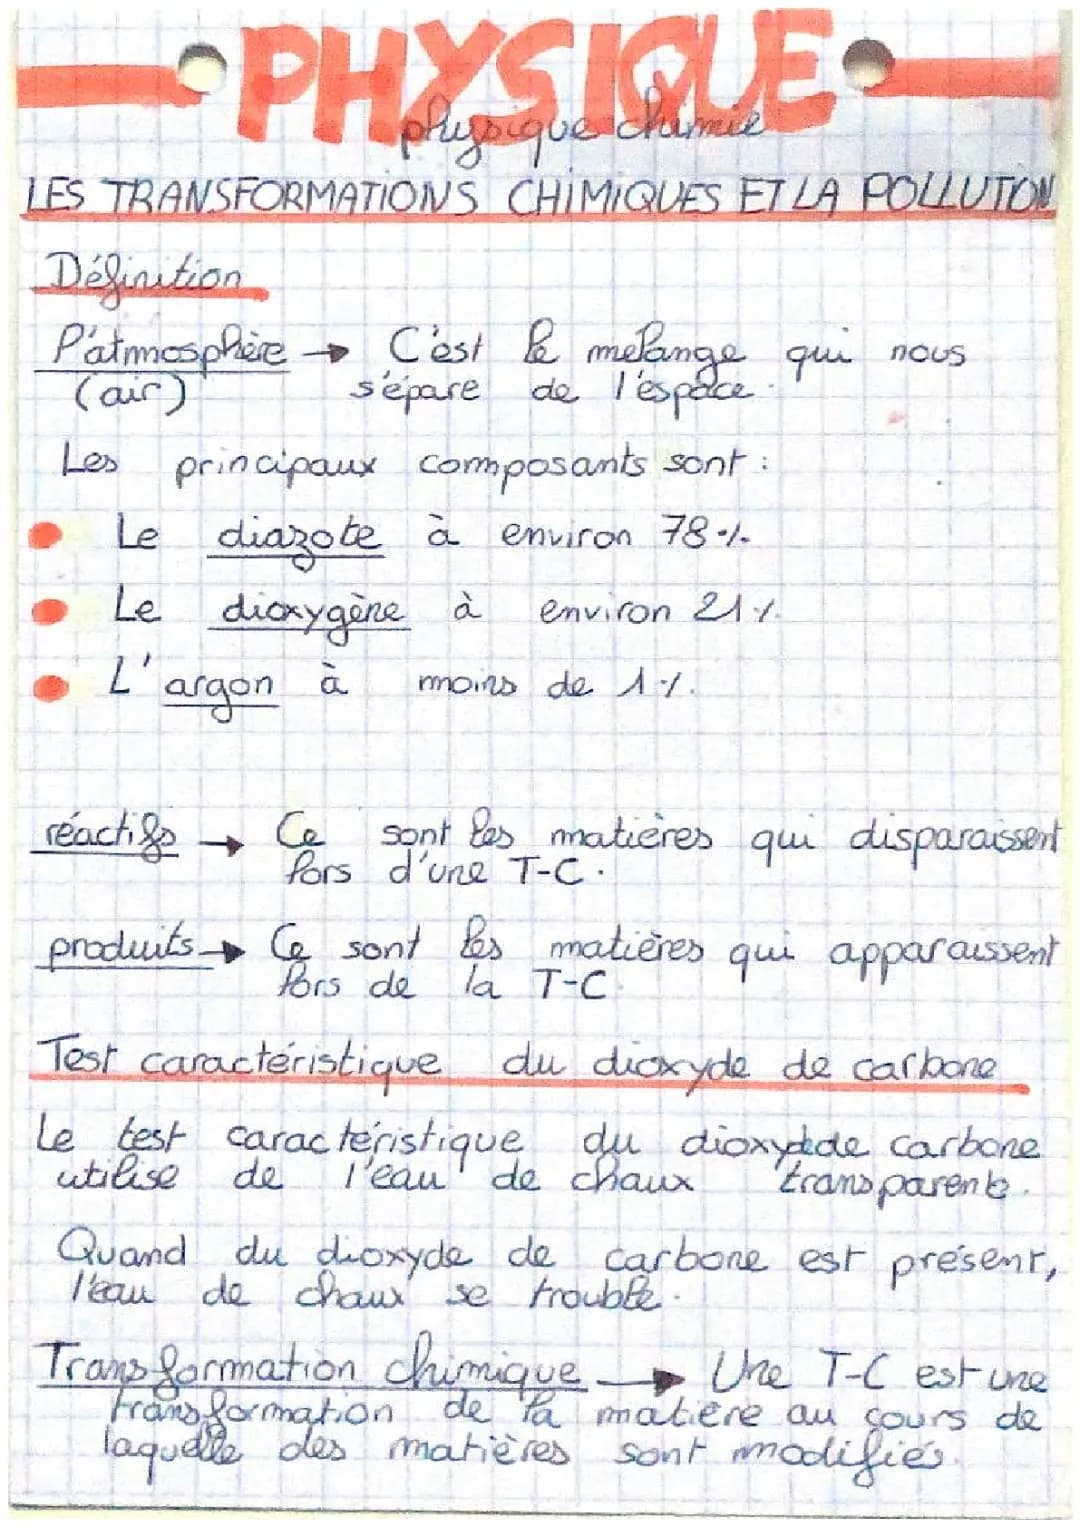 PHYSIQUE
physique chimie
LES TRANSFORMATIONS CHIMIQUES ET LA POLLUTION
Définition
l'atmosphère → C'est le melange qui nous
(air) s'épare de l'éspace.
Les principaux composants sont :
Le diazote à environ 78 %.
Le dioxygène à environ 21 %.
L'argon à moins de 1 %.
réactifs → Ce sont les matières qui disparaissent
lors d'une T-C.
produits → Ce sont les matières qui apparaissent
lors de la T-C
Test caractéristique du dioxyde de carbone
Le test caractéristique du dioxydede carbone
utilise de l'eau de chaux transparente.
Quand du dioxyde de carbone est présent,
l'eau de chaux se trouble.
Transformation chimique → Une T-C est une
transformation de la matière au cours de
laquelle des matières sont modifiés.